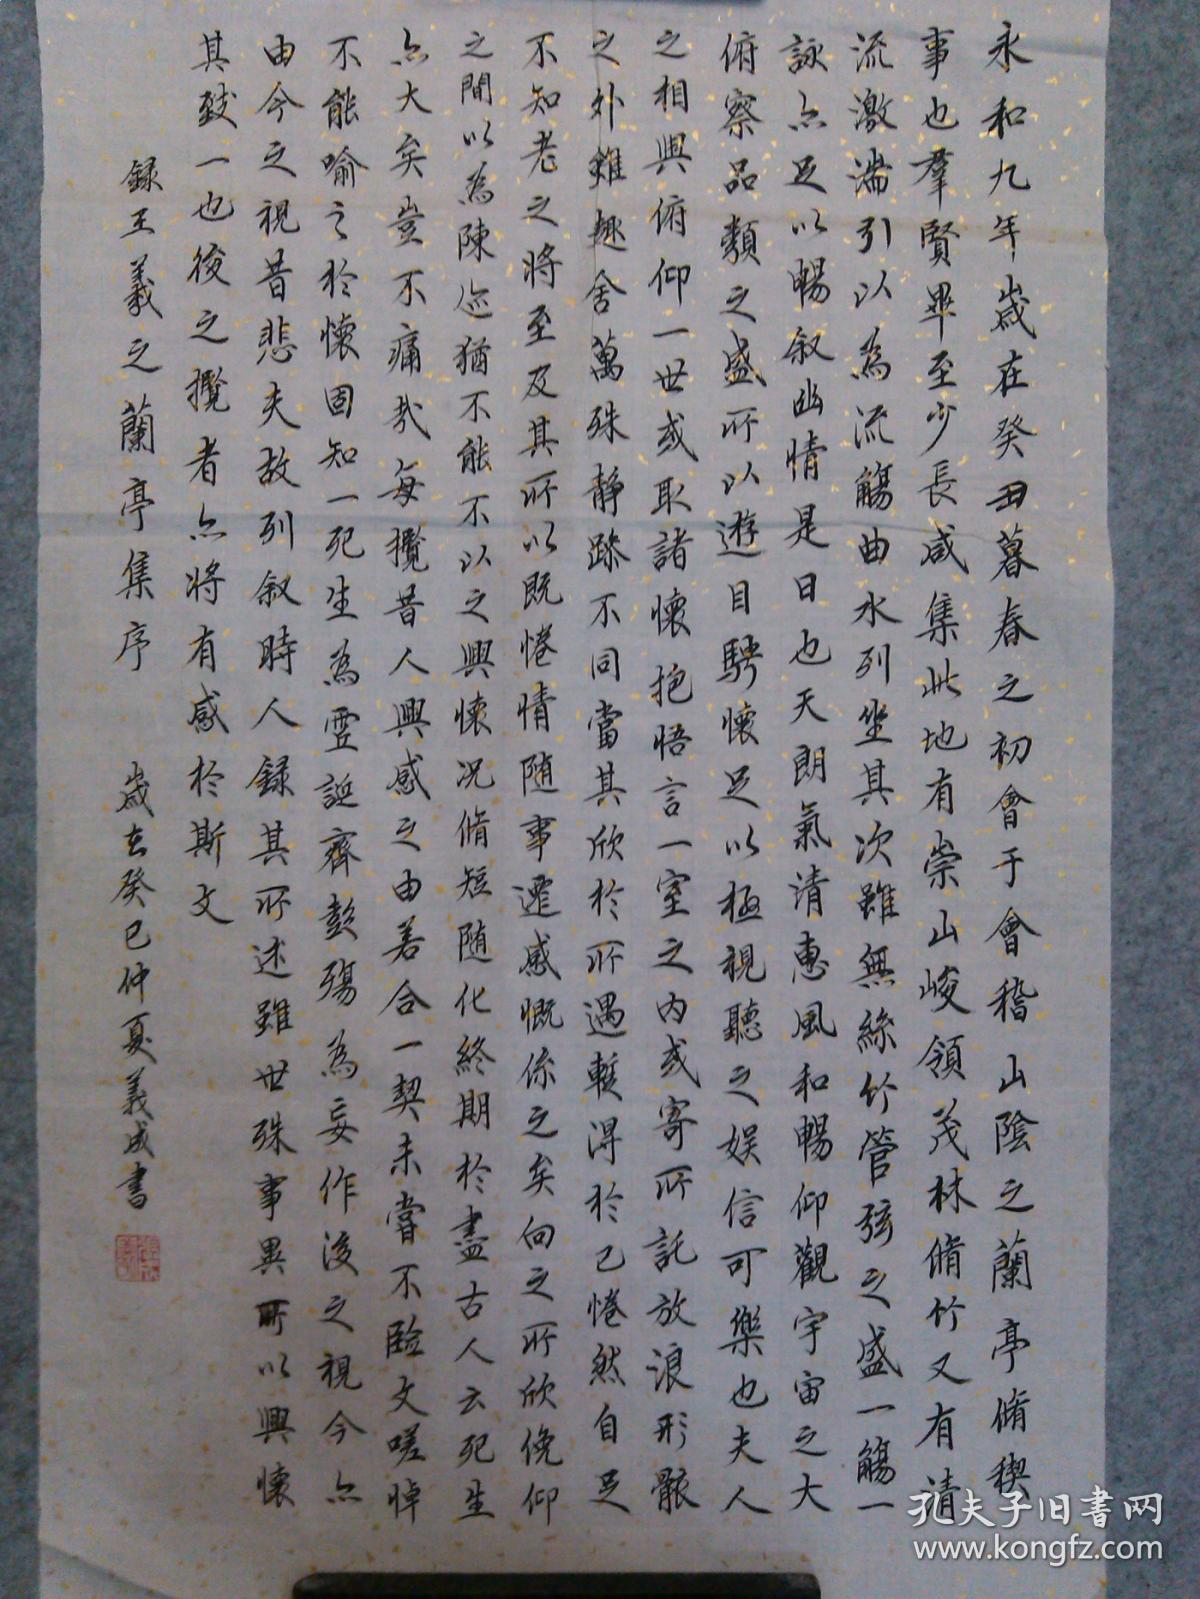 永和九年歲在癸丑暮春之初會于會稽山陰之蘭亭脩稧
事也羣賢畢至少長咸集此地有崇山峻領茂林脩竹又有清
流激湍引以為流觴曲水列坐其次雖無絲竹管弦之盛一觴一
詠亦足以暢叙幽情是日也天朗氣清惠風和暢仰觀宇宙之大
俯察品類之盛所以遊目騁懷足以極視聽之娱信可樂也夫人
之相與俯仰一世或取諸懷抱悟言一室之内或寄所託放浪形骸
之外雖趣舍萬殊静躁不同當其欣於所遇暫得於己惓然自足
不知老之將至及其所以既惓情随事遷感慨係之矣向之所欣俛仰
之閒以為陳迹猶不能不以之興懷況脩短随化終期於盡古人云死生
亦大矣豈不痛哉每攬昔人興感之由若合一契未嘗不臨文嗟悼
不能喻之於懷固知一死生為虚誕齊彭殤為妄作後之視今亦
由今之視昔悲夫故列叙時人録其所述雖世殊事異所以興懷
其致一也後之攬者亦將有感於斯文
録王羲之蘭亭集序 歲在癸巳仲夏義成書
孔夫子旧书网
www.kongfz.com